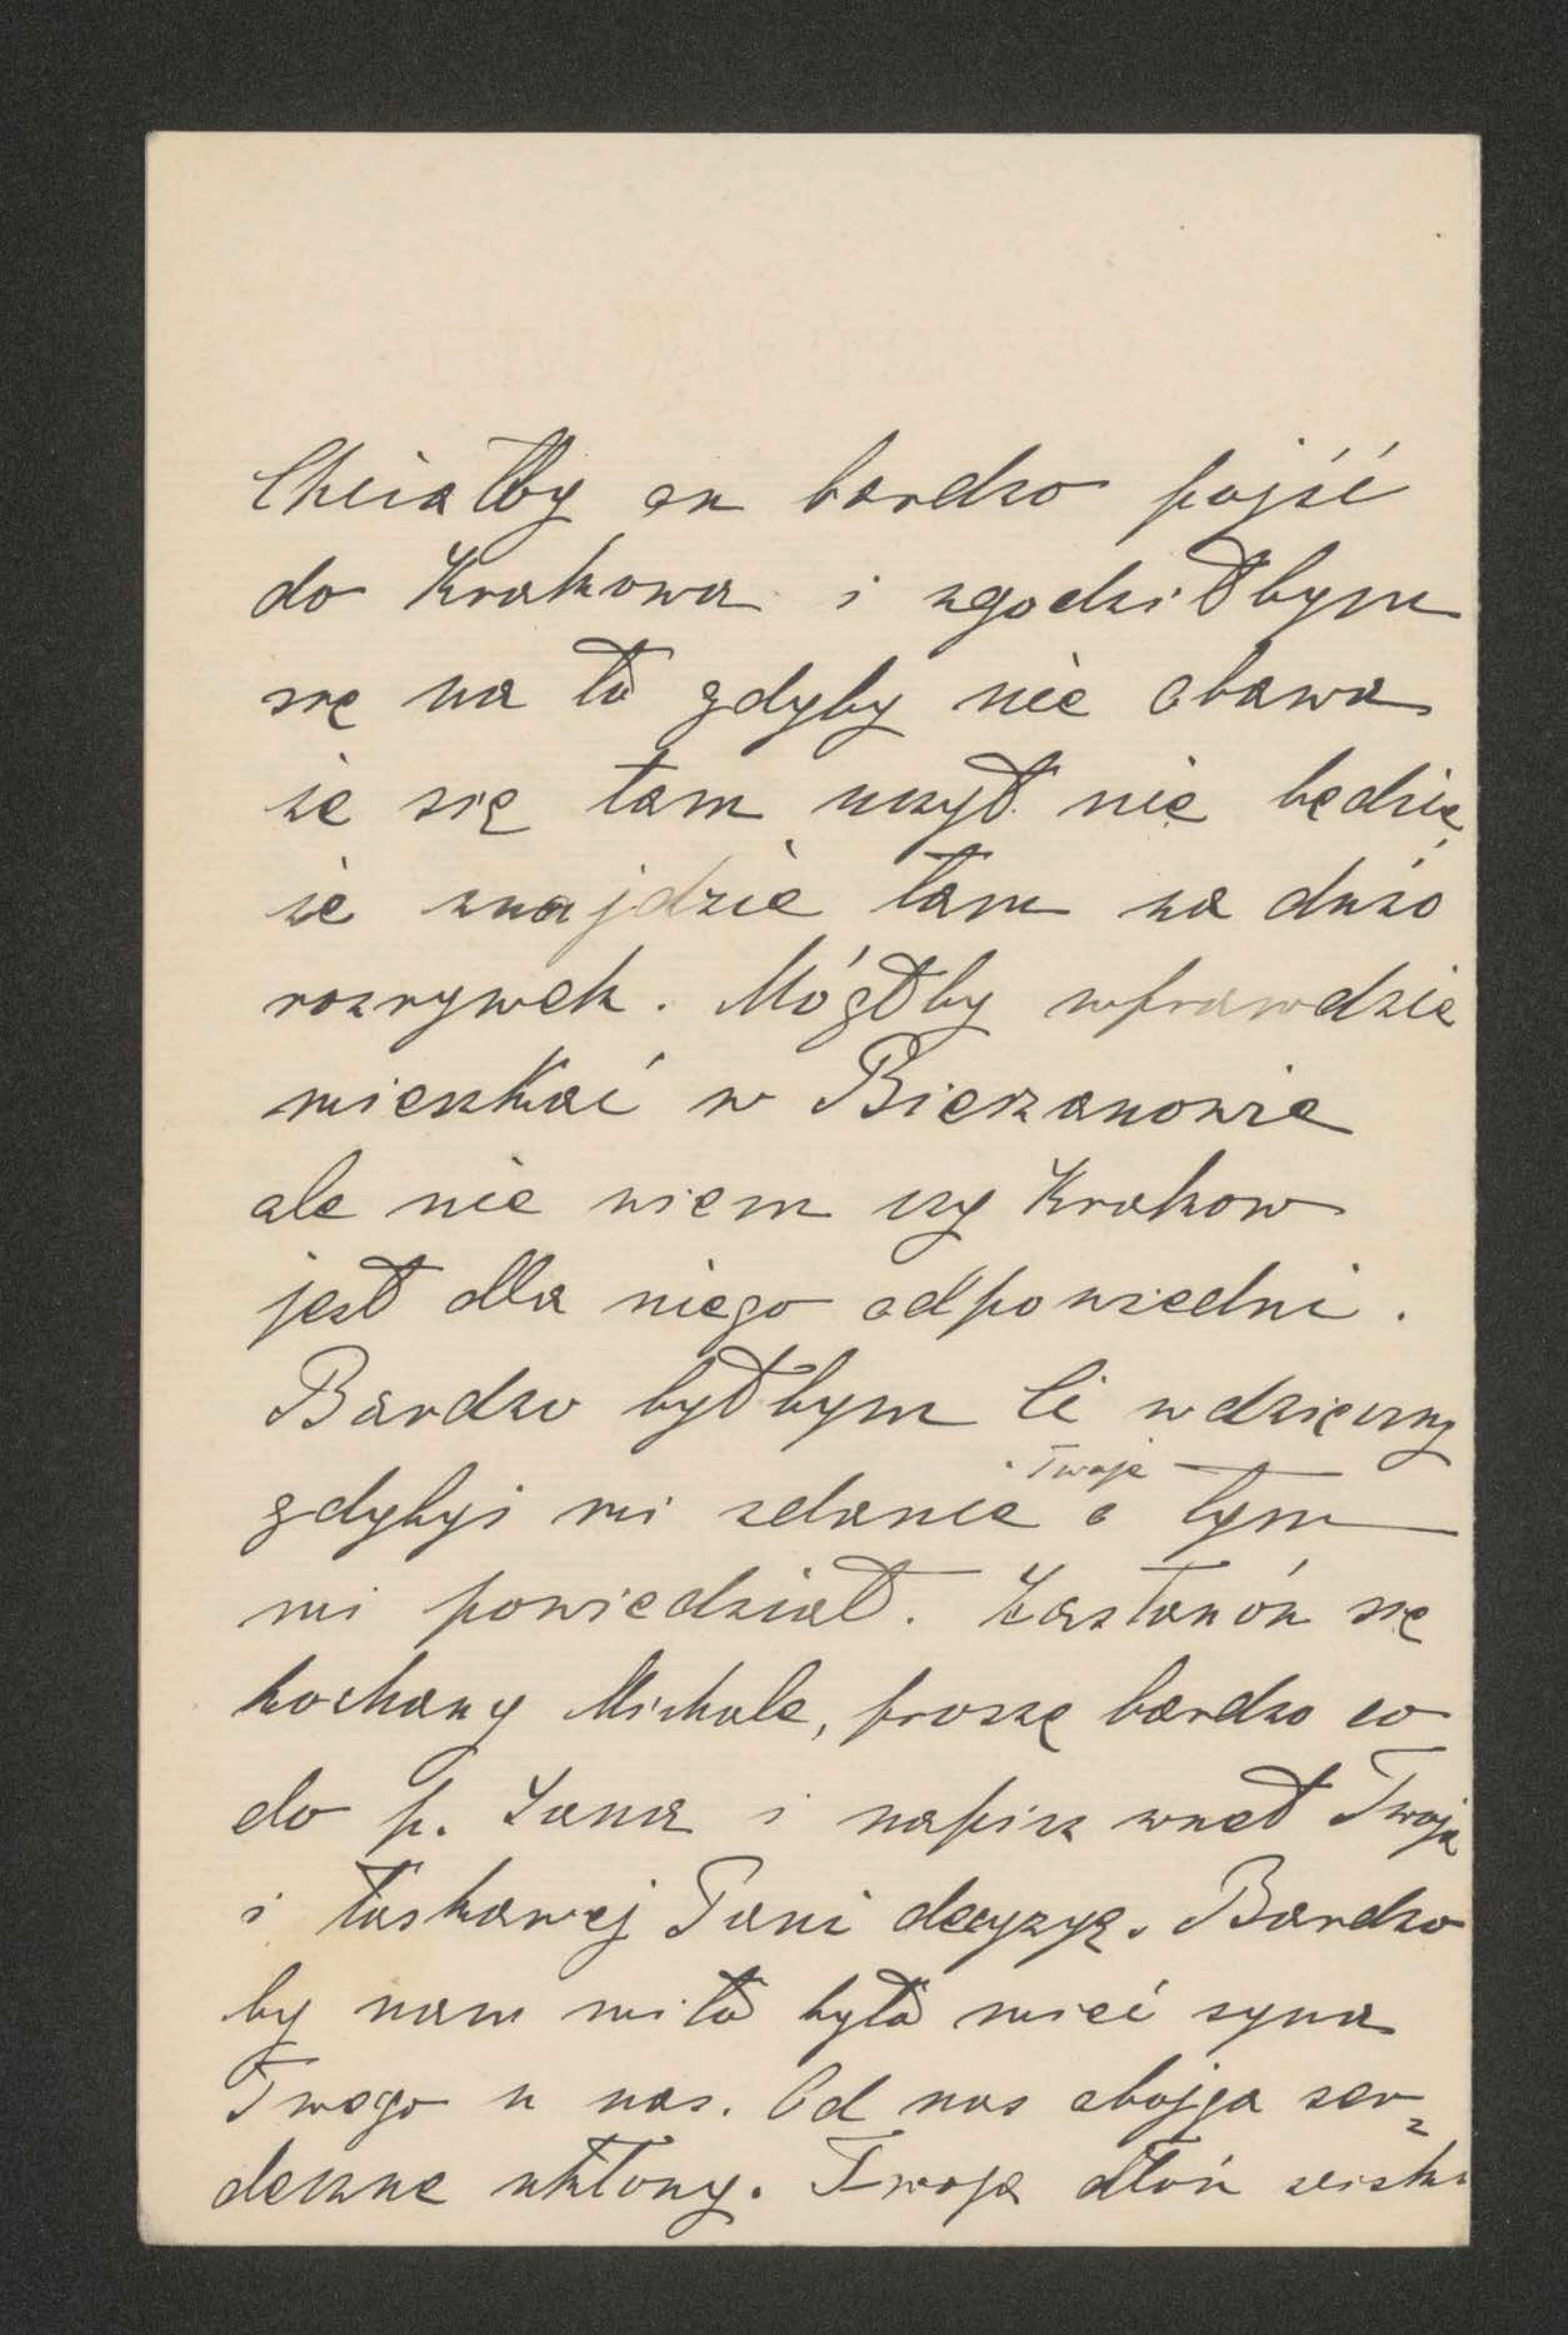 Chciałby on bardzo pójść
do Krakowa i zgodziłbym
się na to gdyby nie obawa
że się tam uczył nie będzie,
że znajdzie tam za dużo
rozrywek. Mógłby wprawdzie
mieszkać w Bierzanowie
ale nie wiem czy Krakow
jest dla niego odpowiedni.
Bardzo byłbym Ci wdzięczny
gdybyś mi zdanie Twoje o tym
mi powiedział. Zastanów się
kochany Michale, proszę bardzo co
do p. Jana i napisz wnet Twoją
i łaskawej Pani decyzyę. Bardzo
by nam miło było mieć syna
Twego u nas. Od nas obojga ser=
deczne ukłony. Twoją dłoń ściska